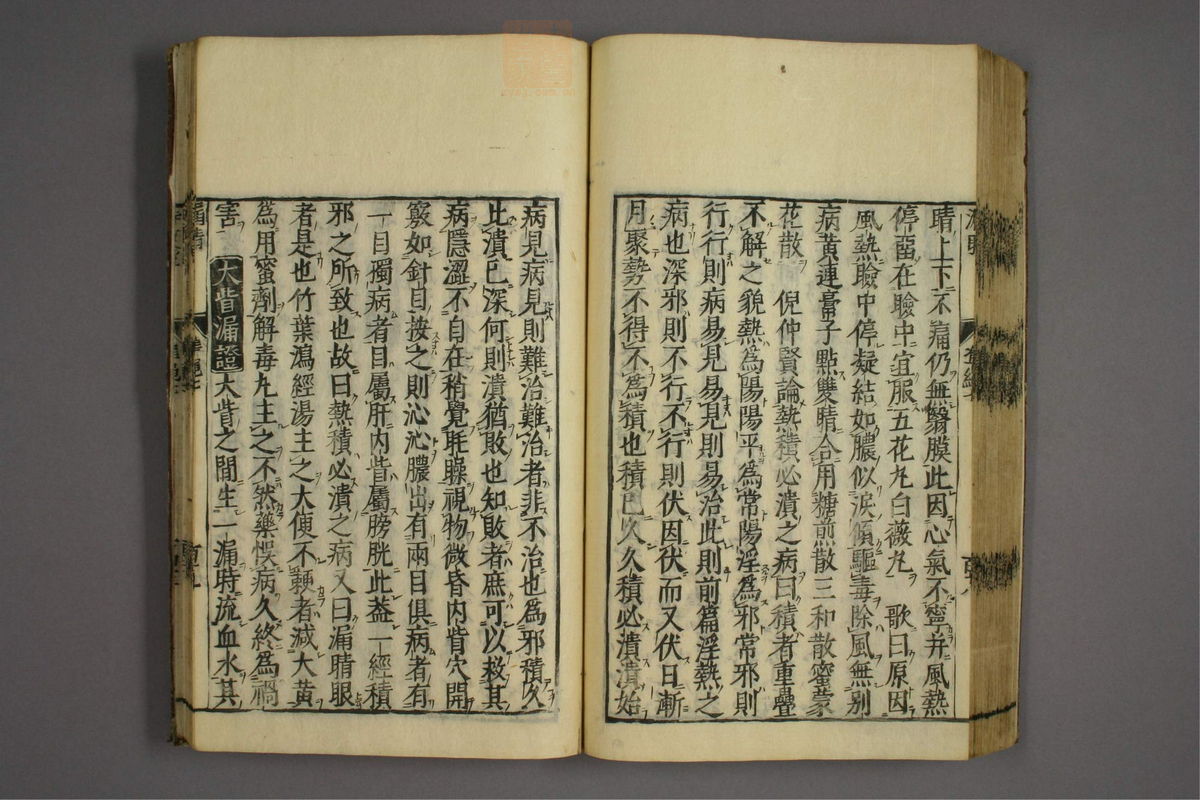 睛上下不痛仍無翳膜此因心氣不寧并風熱
停留在瞼中宜服五花丸白薇丸　歌曰原因
風熱瞼中停凝結如膿似淚傾驅毒除風無別
病黃連膏子點雙睛合用糖煎散三和散蜜蒙
花散　倪仲賢論熱積必潰之病曰積者重疊
不解之貌熱為陽陽平為常陽淫為邪常邪則
行行則病易見易見則易治此則前篇淫熱之
病也深邪則不行不行則伏因伏而又伏日漸
月聚勢不得不為積也積已久久積必潰潰始
病見病見則難治難治者非不治也為邪積久
此潰已深何則潰猶敗也知敗者庶可以救其
病隱澀不自在稍覺眊矂視物微昏內眥穴開
竅如針目按之則沁沁膿出有兩目俱病者有
一目獨病者目屬肝內眥屬膀胱此蓋一經積
邪之所致也故曰熱積必潰之病又曰漏睛眼
者是也竹葉瀉經湯主之大便不䩕者減大黃
為用蜜劑解毒丸主之不然藥悞病久終為禍
害　大眥漏證 大眥之間生一漏時流血水其